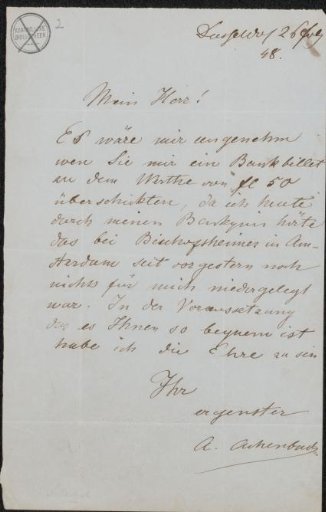 2
Dusseldorf 26 July
48.
Mein Herr!
Es wäre mir angenehm
wen Sie mir ein Bankbillet
zu dem Werthe von fl 50
überschikten, da ich heute
durch meinen Banquier hörte
das bei Bischofsheimer in Am-
sterdam seit vorgestern noch
nichts für mich niedergelegt
war. In der Voraussetzung
das es Ihnen so bequem ist
habe ich die Ehre zu sein
Ihr
ergenster
A. Achenbach.